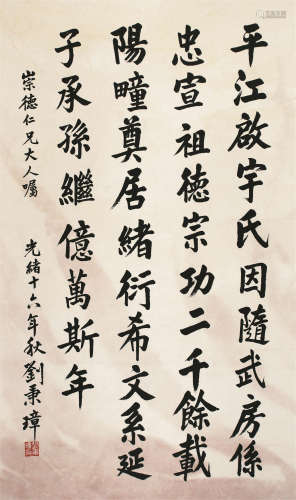 平江啟宇氏因隨武房係
忠宣祖德宗功二千餘載
陽疃奠居緒衍希文系延
子承孫繼億萬斯年
崇德仁兄大人囑
光緒十六年秋劉秉璋